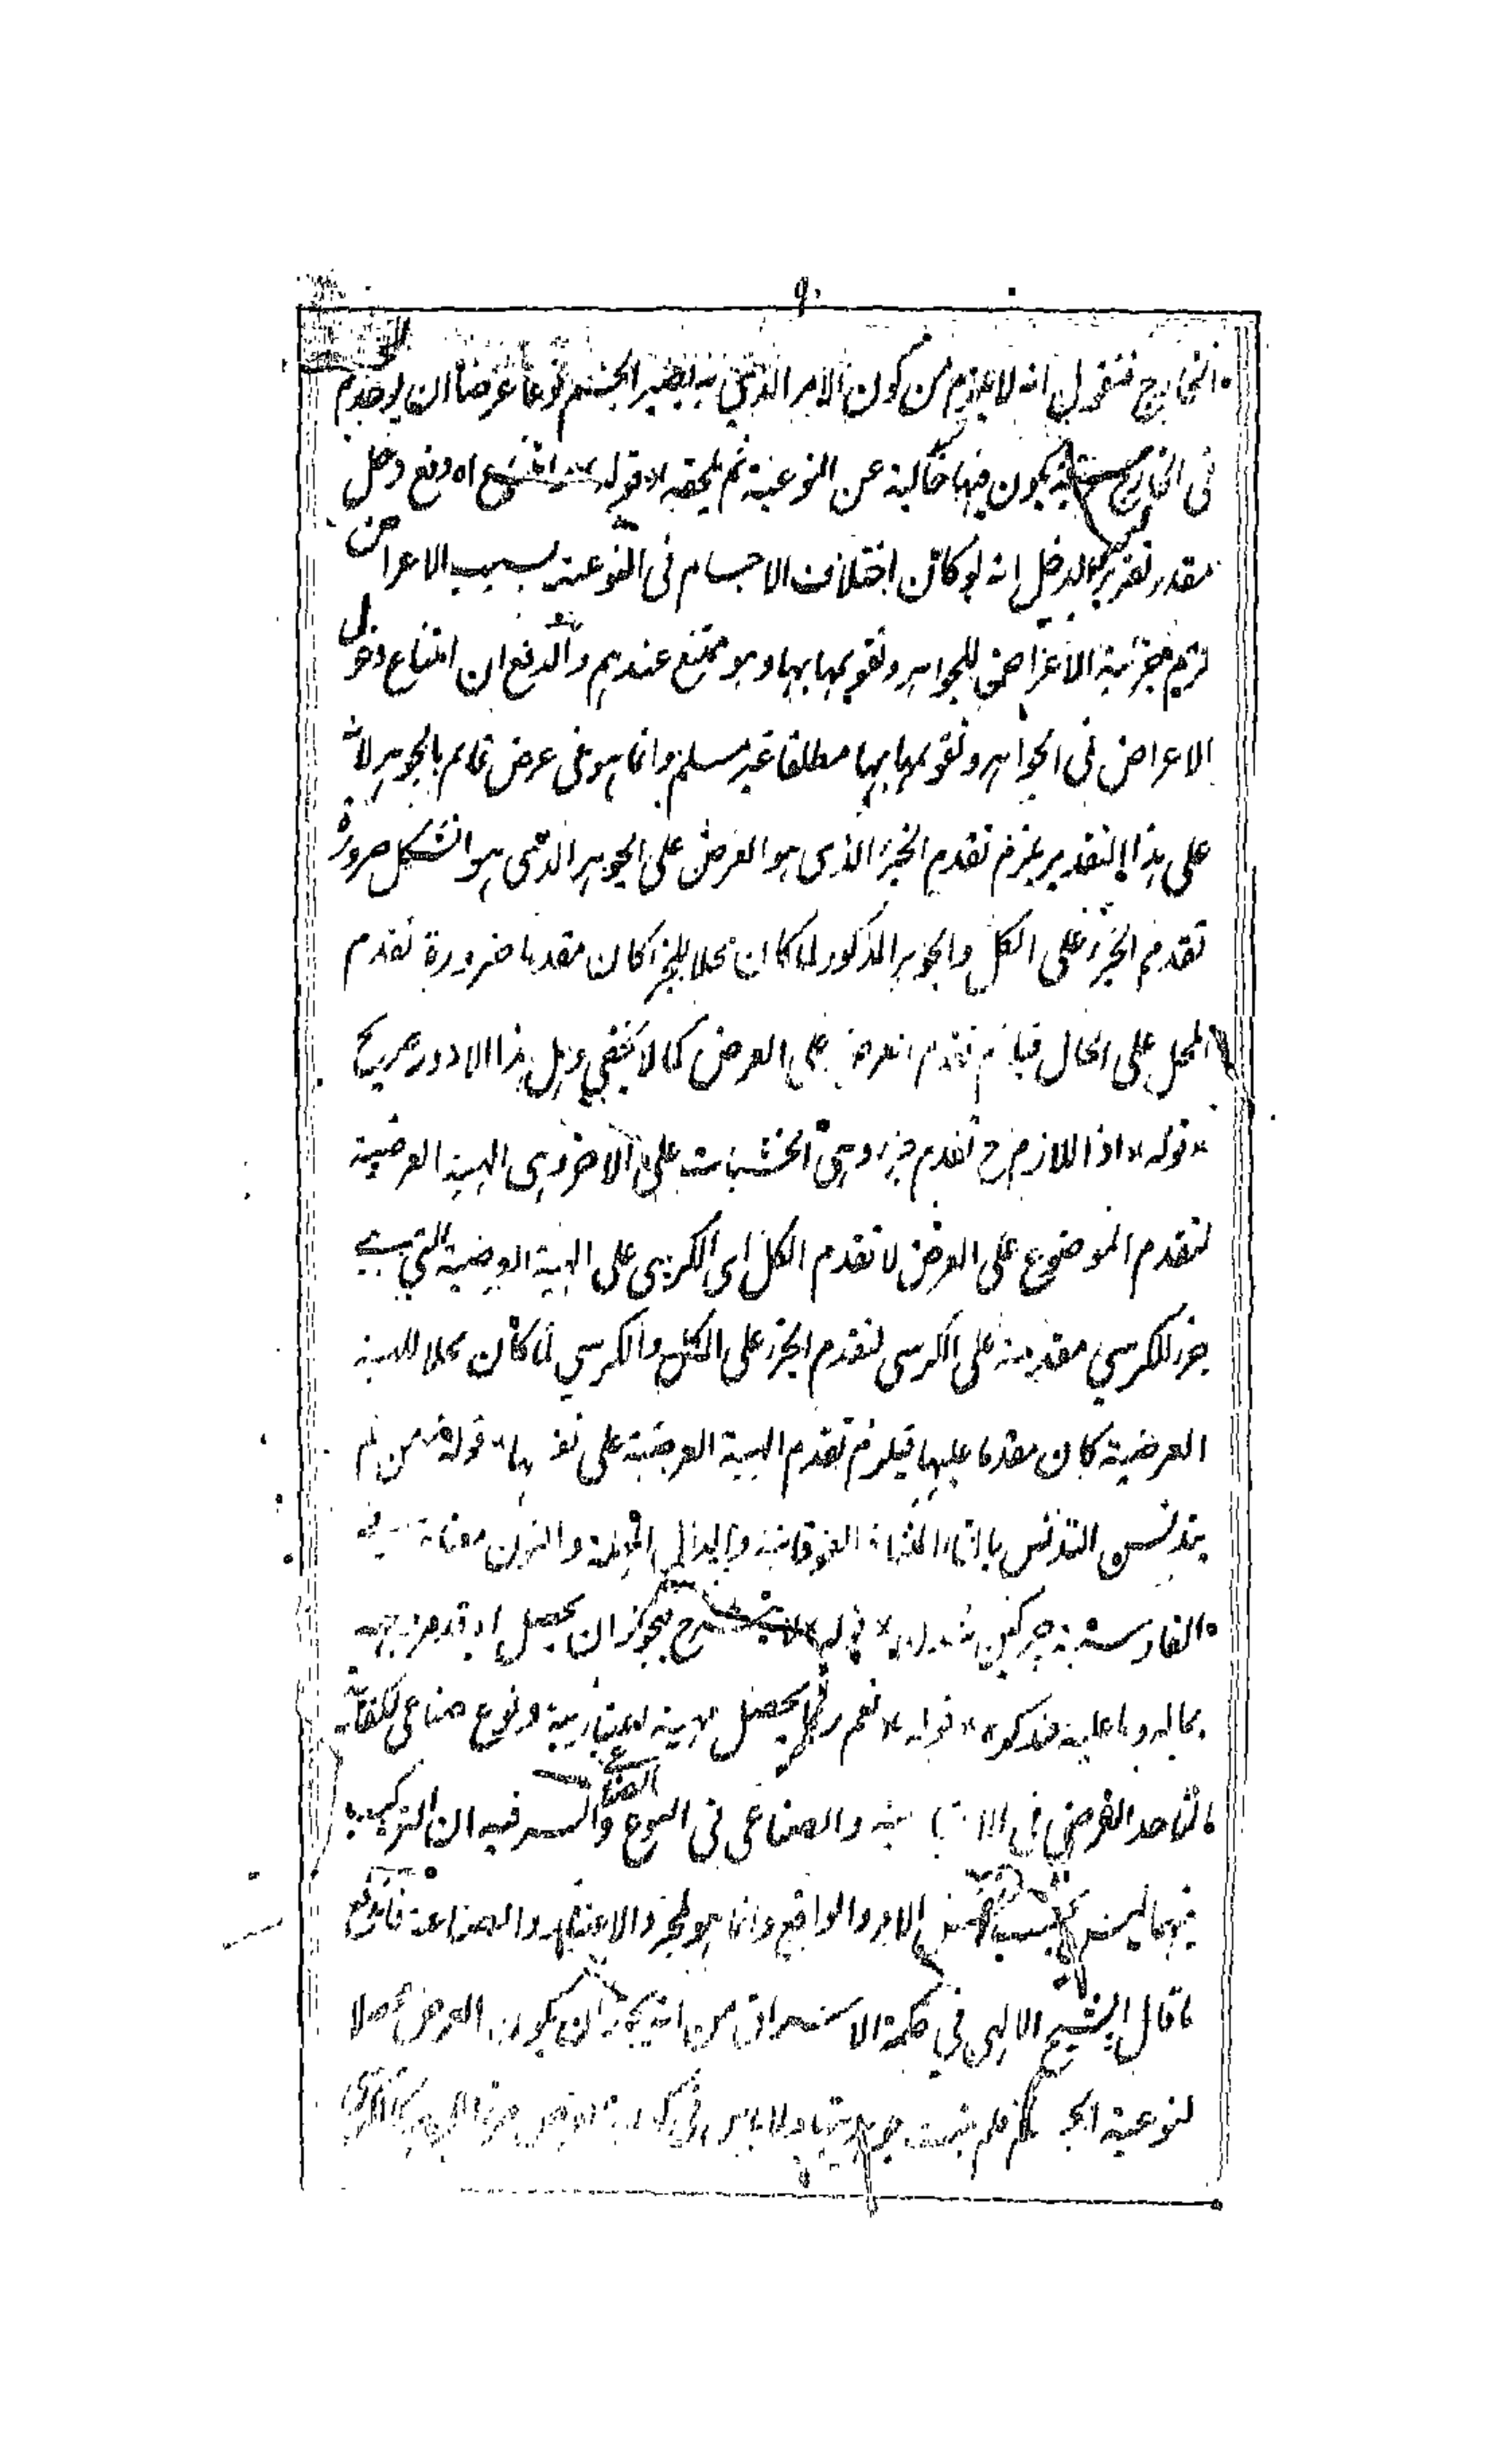 ٩٠
الخارج فنقول انه لا يلزم من كون الامر الذي به يصير الجسم نوعا عرضا ان يوجد الجسم
فى الخارج يكون فيها خالية عن النوعية ثم يلحقه * قوله * امتنع اه دفع دخل
مقدر تقرير الدخل انه لو كان اختلاف الاجسام فى النوعية بسبب الاعراض
لزم جزئية الاعراض للجواهر وتقويمها بها وهو ممتنع عندهم والدفع ان امتناع دخول
الاعراض فى الجواهر وتقويمها بها مطلقا غير مسلم وانما هو فى عرض قائم بالجوهر لانه
على هذا التقدير يلزم تقدم الجزء الذى هو العرض على الجوهر الذى هو الكل ضرورة
تقدم الجزء على الكل والجوهر المذكور لما كان محلا للجزء كان مقدما ضرورة تقدم
المحل على الحال فيلزم تقدم العرض على العرض كما لا يخفى وهل هذا الا دور صريح
* قوله * اذ اللازم ح تقدم جزء وهى الخشبات على الاخر وهى الهيئة العرضية
لتقدم الموضوع على العرض لا تقدم الكل اى الكرسى على الهيئة العرضية التى هى
جزء للكرسي مقدمة على الكرسى لتقدم الجزء على الكل والكرسي لما كان محلا للهيئة
العرضية كان مقدما عليها فيلزم تقدم الهيئة العرضية على نفسها * قوله * من لم
يتدنس التدنس بالتاء المثناة الفوقانية والدال المهملة والنون معناه فى
الفارسية چركين شدن * قوله * ح يجوز ان يحصل
بماله وما عليه فتذكر * قوله * نعم ربما يحصل هيئة اعتبارية ونوع صناعى لكفاية
التاحد الفرضى فى الاعتبارية والصناعى فى النوع الصناعى والسر فيه ان التركيب
فيهما ليس بحسب نفس الامر والواقع وانما هو لمجرد الاعتبار والصناعة فاندفع
ما قال الشيخ الالهى فى حكمة الاشراق من انه يجوز ان يكون العرض محصلا
لنوعية الجوهر فلم يثبت جوهريتها ولا باس فى